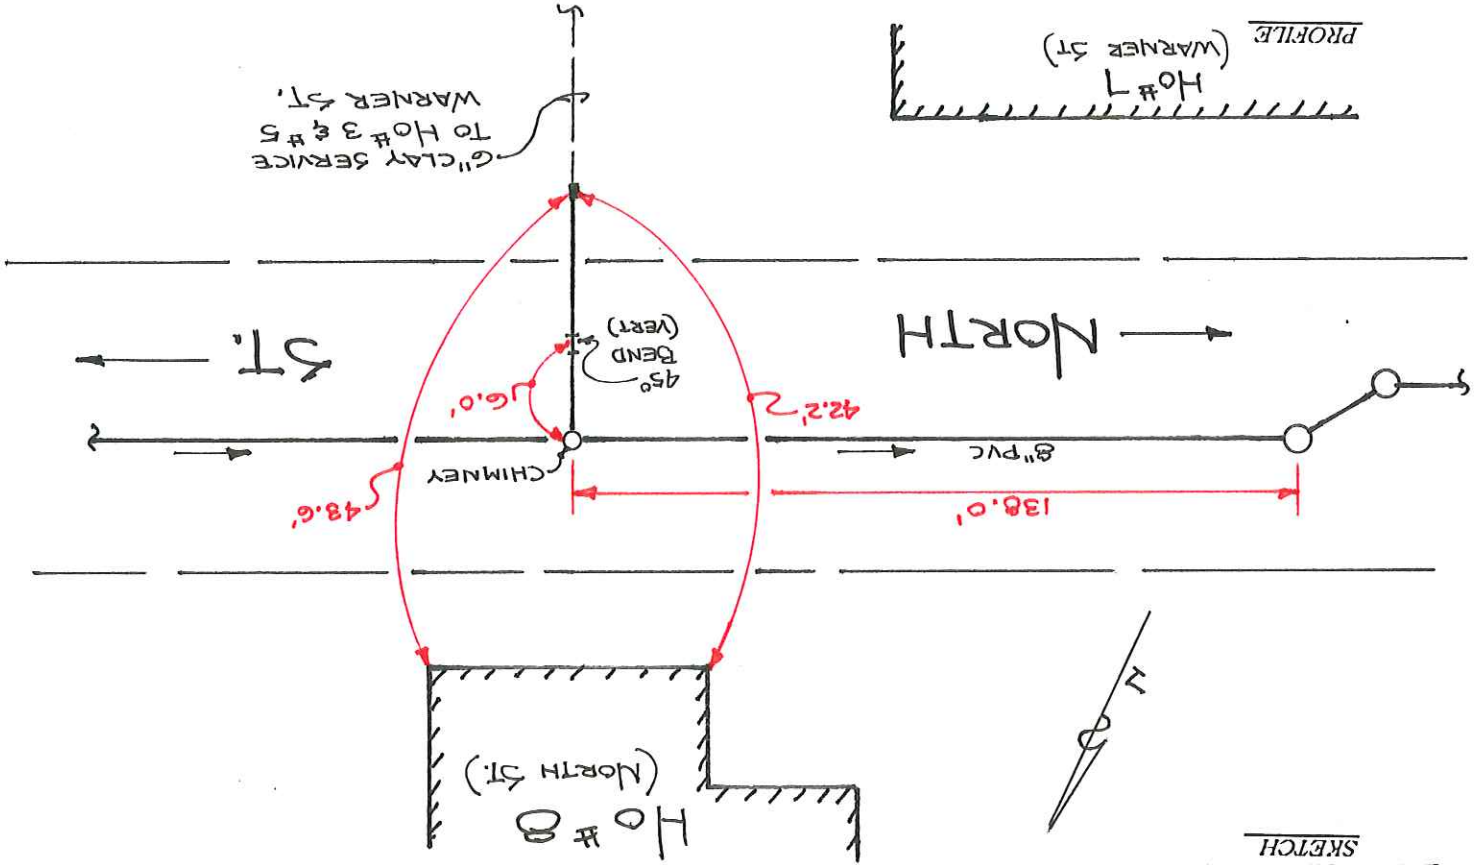 SKETCH
Ho # 8
(NORTH ST.)
N
138.0'
43.6'
8" PVC
CHIMNEY
42.2'
6.0'
45°
BEND
(VERT)
NORTH
ST.
6" CLAY SERVICE
TO Ho # 3 & # 5
WARNER ST.
Ho # 7
(WARNER ST)
PROFILE